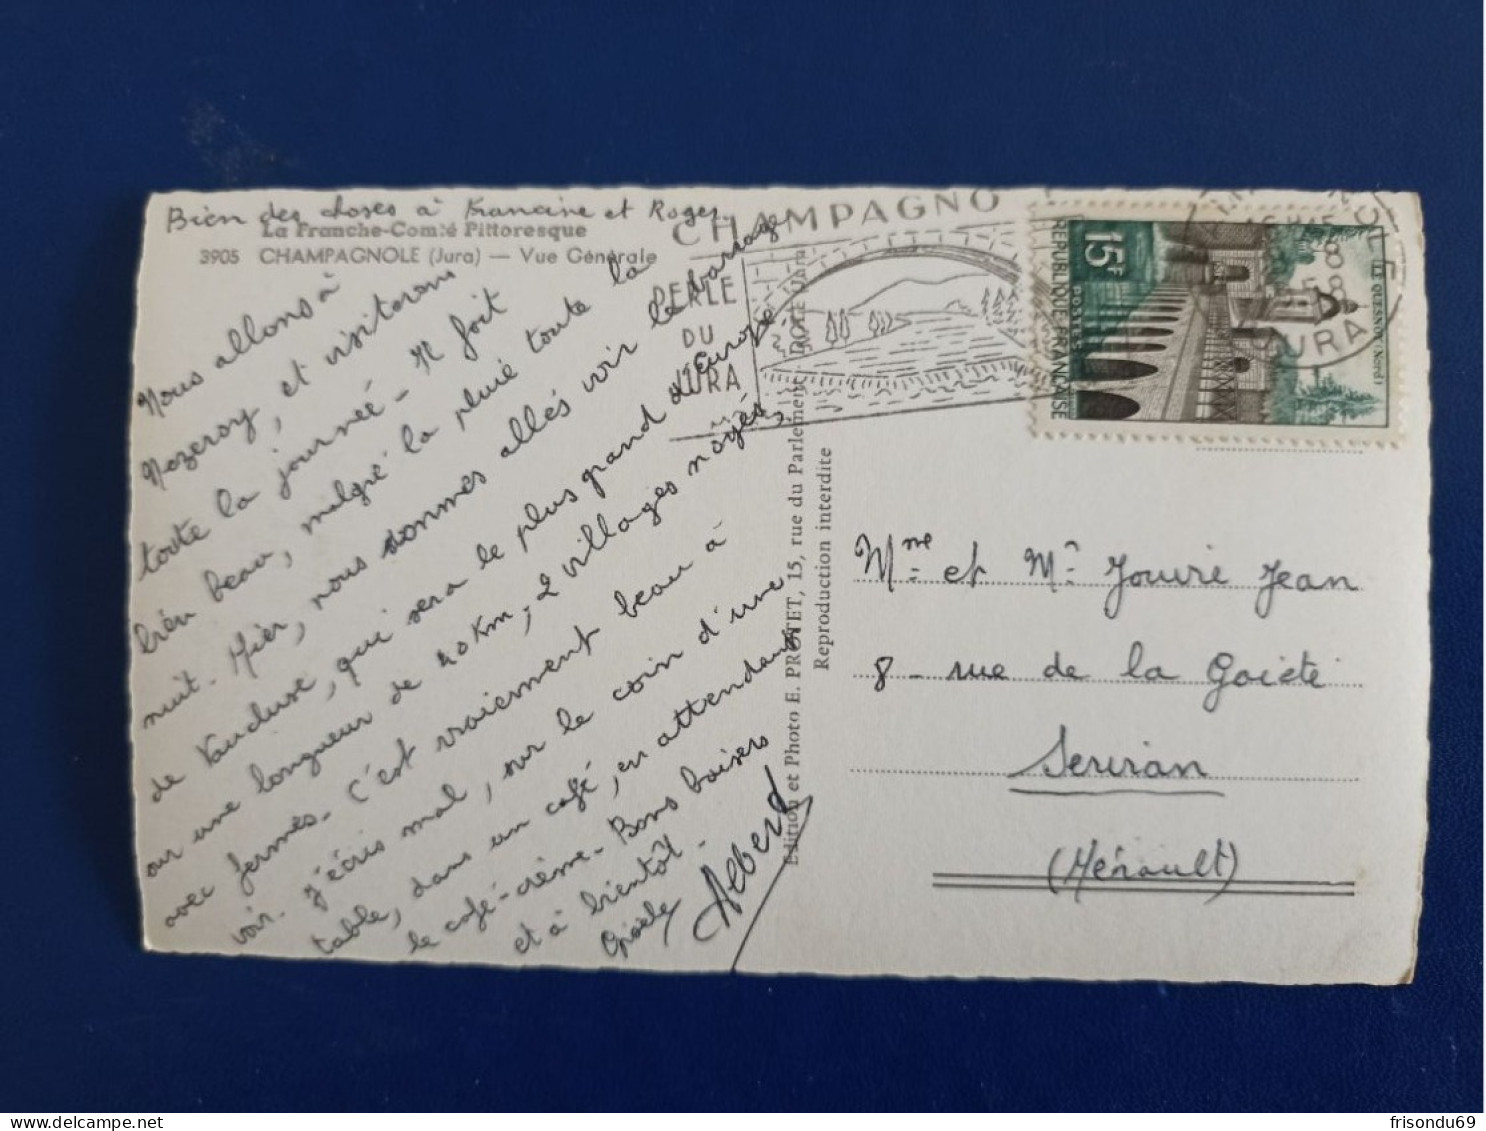 Bien des choses à Francine et Roger.
La Franche-Comté Pittoresque
3905 CHAMPAGNOLE (Jura) — Vue Générale
Nous allons à
Nozeroy, et visiterons
toute la journée - Il fait
bien beau, malgré la pluie toute la
nuit. Hier, nous sommes allés voir le barrage
de Vaucluse, qui sera le plus grand d'Europe
sur une longueur de 40 Km, 2 villages noyés,
avec fermes. C'est vraiment beau à
voir. J'écris mal, sur le coin d'une
table, dans un café, en attendant
le café-crème - Bons baisers
et à bientôt -
Gisèle Albert
CHAMPAGNO
PERLE
DU
JURA
15F
REPUBLIQUE FRANÇAISE
POSTES
LE QUESNOY (Nord)
JURA
Edition et Photo E. PROTET, 15, rue du Parlement, DOLE (Jura)
Reproduction interdite
Mme et Mr Jouvre Jean
8 - rue de la Gaieté
Servian
(Hérault)
frisondu69